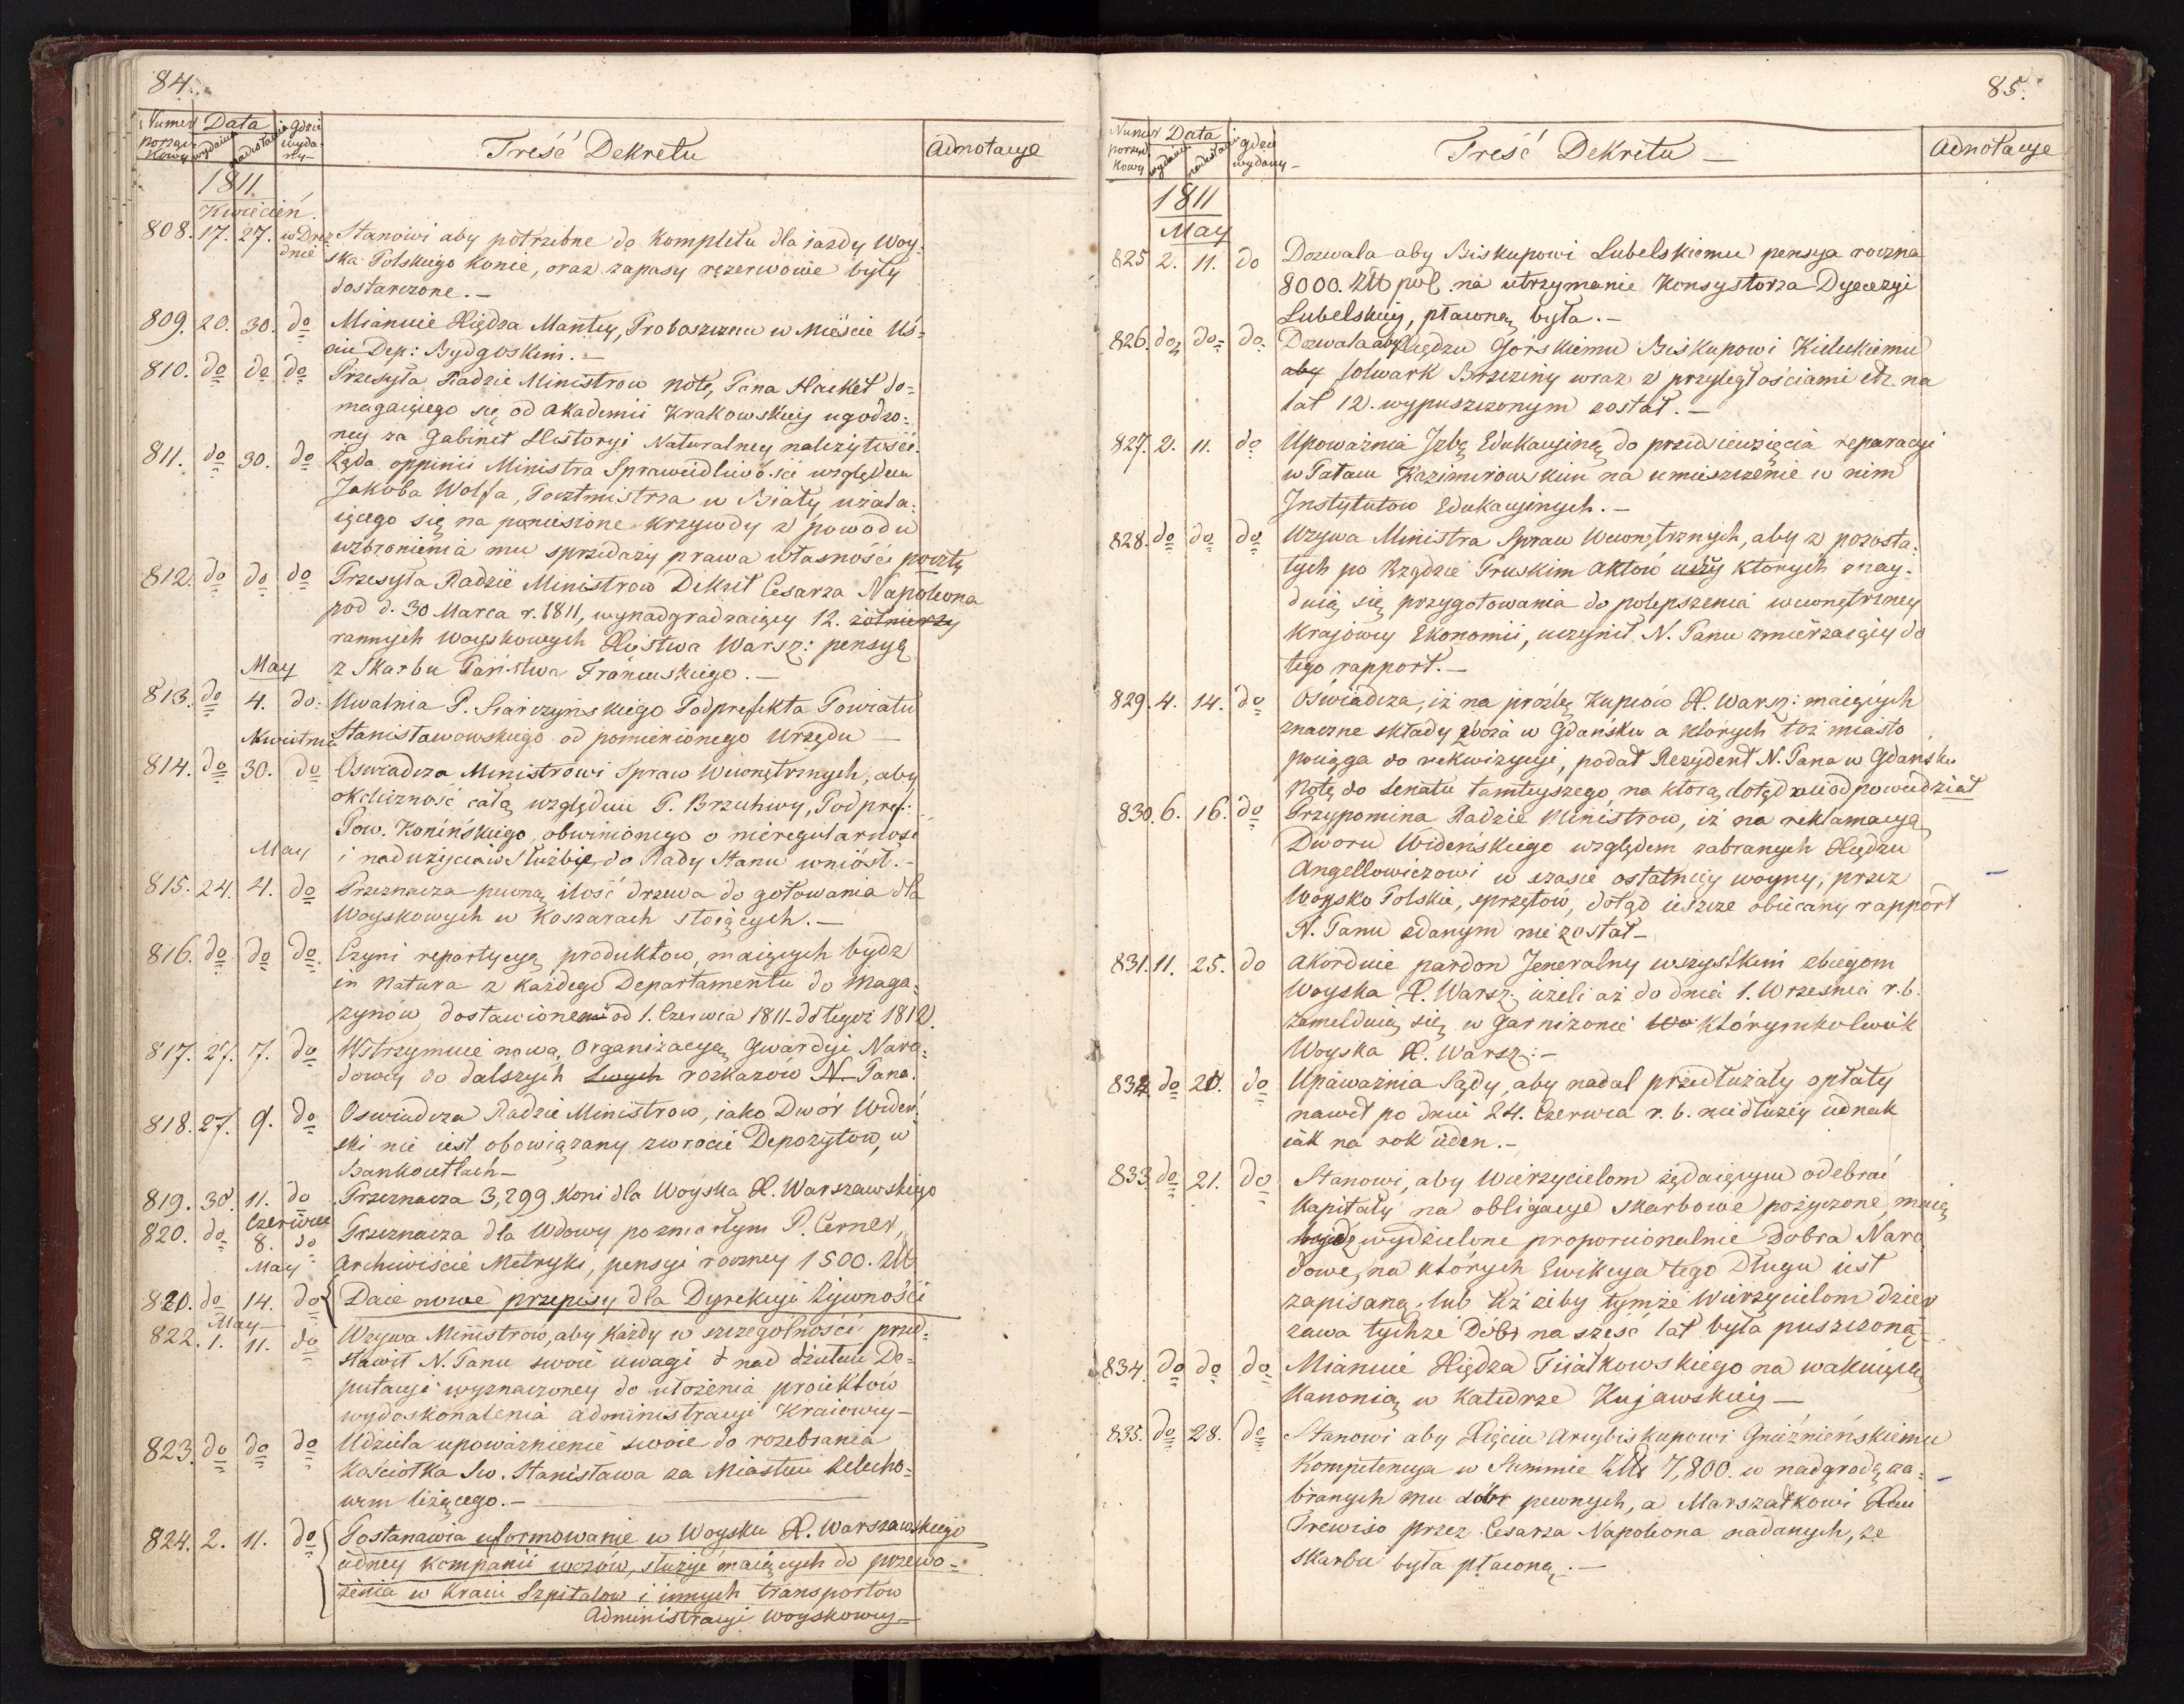 84.
Numer porząd- kowy | Data wydania nadesłania | gdzie wyda- ny | Treść Dekretu | Adnotacye
1811.
Kwiecień.
808. 17. 27. w Drez- dnie Stanowi aby potrzebne do kompletu dla iazdy Woy-
ska Polskiego konie, oraz zapasy rezerwowe były
dostarczone. —
809. 20. 30. do Mianuie Xiędza Mantey, Proboszczem w Mieście Uś-
ciu Dep: Bydgoskim. —
810. do do do Przesyła Radzie Ministrow notę, Pana Hacket do-
magaiącego się od Akademii Krakowskiey ugodzo-
ney za Gabinet Historyi Naturalney należytości.
811. do 30. do Żąda oppinii Ministra Sprawiedliwości względem
Jakoba Wolfa, Pocztmistrza w Biały użala-
iącego się na poniesione krzywdy z powodu
wzbronienia mu sprzedaży prawa własności poczty
812. do do do Przesyła Radzie Ministrow Dekret Cesarza Napoleona
pod d. 30 Marca r. 1811, wynadgradzaiący 12. żołnierzy
rannych woyskowych Xięstwa Warsz: pensyą
May z Skarbu Państwa Francuskiego. —
813. do 4. do: Uwalnia P. Siarczyńskiego Podprefekta Powiatu
Kwietnia Stanisławowskiego od pomienionego Urzędu —
814. do 30. do Oswiadcza Ministrowi Spraw Wewnętrznych, aby
okoliczność całą względem P. Brzuhwy, Podpref:
Pow. Konińskiego, obwinionego o nieregularność
May i nadużycia w Służbie, do Rady Stanu wniósł. —
815. 24. 4. do Przeznacza pewną ilość drzewa do gotowania dla
Woyskowych w Koszarach stoiących. —
816. do do do. Czyni repartycyą produktow, maiących bydz
in natura z każdego Departamentu do Maga-
zynów dostawionemi od 1. Czerwca 1811 - do tegoż 1812.
817. 27. 7. do Wstrzymuie nową Organizacyą Gwardyi Naro-
dowey do dalszych swych rozkazów N. Pana.
818. 27. 9. do Oswiadcza Radzie Ministrow, iako Dwór Wideń-
ski nie iest obowiązany zwrocić Depozytow, w
Bankocetlach —
819. 30. 11. do Przeznacza 3,299. Koni dla Woyska X. Warszawskiego
Czerwiec
820. do 8. do Przeznacza dla Wdowy po zmarłym P. Cerner,
May Archiwiście Metryki, pensyi roczney 1500. Złł
821. do 14. do Daie nowe przepisy dla Dyrekcyi Żywności
May
822. 1. 11. do Wzywa Ministrow, aby każdy w szczegolności przed-
stawił N. Panu swoie uwagi nad dziełem De-
putacyi wyznaczoney do ułożenia proiektów
wydoskonalenia Administracyi Kraiowey —
823. do do do Udziela upoważnienie swoie do rozebrania
Kościołka Sw. Stanisława za Miastem Żelecho-
wem leżącego. —
824. 2. 11. do Postanawia uformowanie w Woysku X. Warszawskiego
iedney kompanii wozów, służyć maiących do przewo-
żenia w Kraiu Szpitalow i innych transportow
Administracyi Woyskowey —
85.
Numer porząd- kowy | Data wydania nadesłania | gdzie wydany — | Treść Dekretu — | Adnotacye
1811
May
825 2. 11. do Dozwala aby Biskupowi Lubelskiemu pensya roczna
8000. Złł pol. na utrzymanie Konsystorza Dyecezyi
Lubelskiey, płaconą była. —
826. do do do Dozwala aby Xiędzu Gorskiemu Biskupowi Kieleckiemu
aby folwark Brzeziny wraz z przyległościami etc. na
lat 12. wypuszczonym został. —
827. 2. 11. do Upoważnia Izbę Edukacyiną do przedsiewzięcia reparacyi
w Pałacu Kazimirowskim na umieszczenie w nim
Instytutow Edukacyinych. —
828. do do do Wzywa Ministra Spraw Wewnętrznych, aby z pozosta-
łych po Rządzie Pruskim aktów których znay-
duią się przygotowania do polepszenia wewnętrzney
Krajowey Ekonomii, uczynił N. Panu zmierzaiący do
tego rapport. —
829. 4. 14. do Oświadcza, iż na prożbę Kupców X. Warsz: maiących
znaczne składy zboża w Gdańsku a których toż miasto
pociąga do rekwizycyi, podał Rezydent N. Pana w Gdańsku
Notę do Senatu tamteyszego na ktorą dotąd nieodpowiedział
830. 6. 16. do Przypomina Radzie Ministrow, iż na reklamacyą
Dworu Wideńskiego względem zabranych Xiędzu
Angellowiczowi w czasie ostatniey woyny, przez
Woysko Polskie, sprzętów, dotąd ieszcze obiecany rapport
N. Panu zdanym nie został —
831. 11. 25. do Akorduie pardon Jeneralny wszystkim zbiegom
Woyska X. Warsz: ieżeli aż do dnia 1. Wrzesnia r. b.
zamelduią się w Garnizonie którymkolwiek
Woyska X. Warsz: —
832 do 21. do Upoważnia Sądy, aby nadal przedłużały opłaty
nawet po dniu 24. Czerwca r. b. niedłużey iednak
iak na rok ieden. —
833. do 21. do Stanowi, aby Wierzycielom żądaiącym odebrać
Kapitały na obligacye skarbowe pożyczone, maią
bydź wydzielone proporcionalnie Dobra Naro-
dowe, na których Ewikcya tego Długu iest
zapisaną, lub też żeby tymże Wierzycielom dzier-
zawa tychże Dóbr na sześć lat była puszczoną —
834. do do do Mianuie Xiędza Fiiałkowskiego na wakuiącą
Kanonią w Katedrze Kujawskiey —
835. do 28. do Stanowi aby Xięciu Arcybiskupowi Gnieźnieńskiemu
Kompetencya w Summie Złł 7,800. w nadgrodę za-
branych mu dóbr pewnych, a Marszałkowi Xciu
Trewiso przez Cesarza Napoleona nadanych, ze
skarbu była płaconą. —